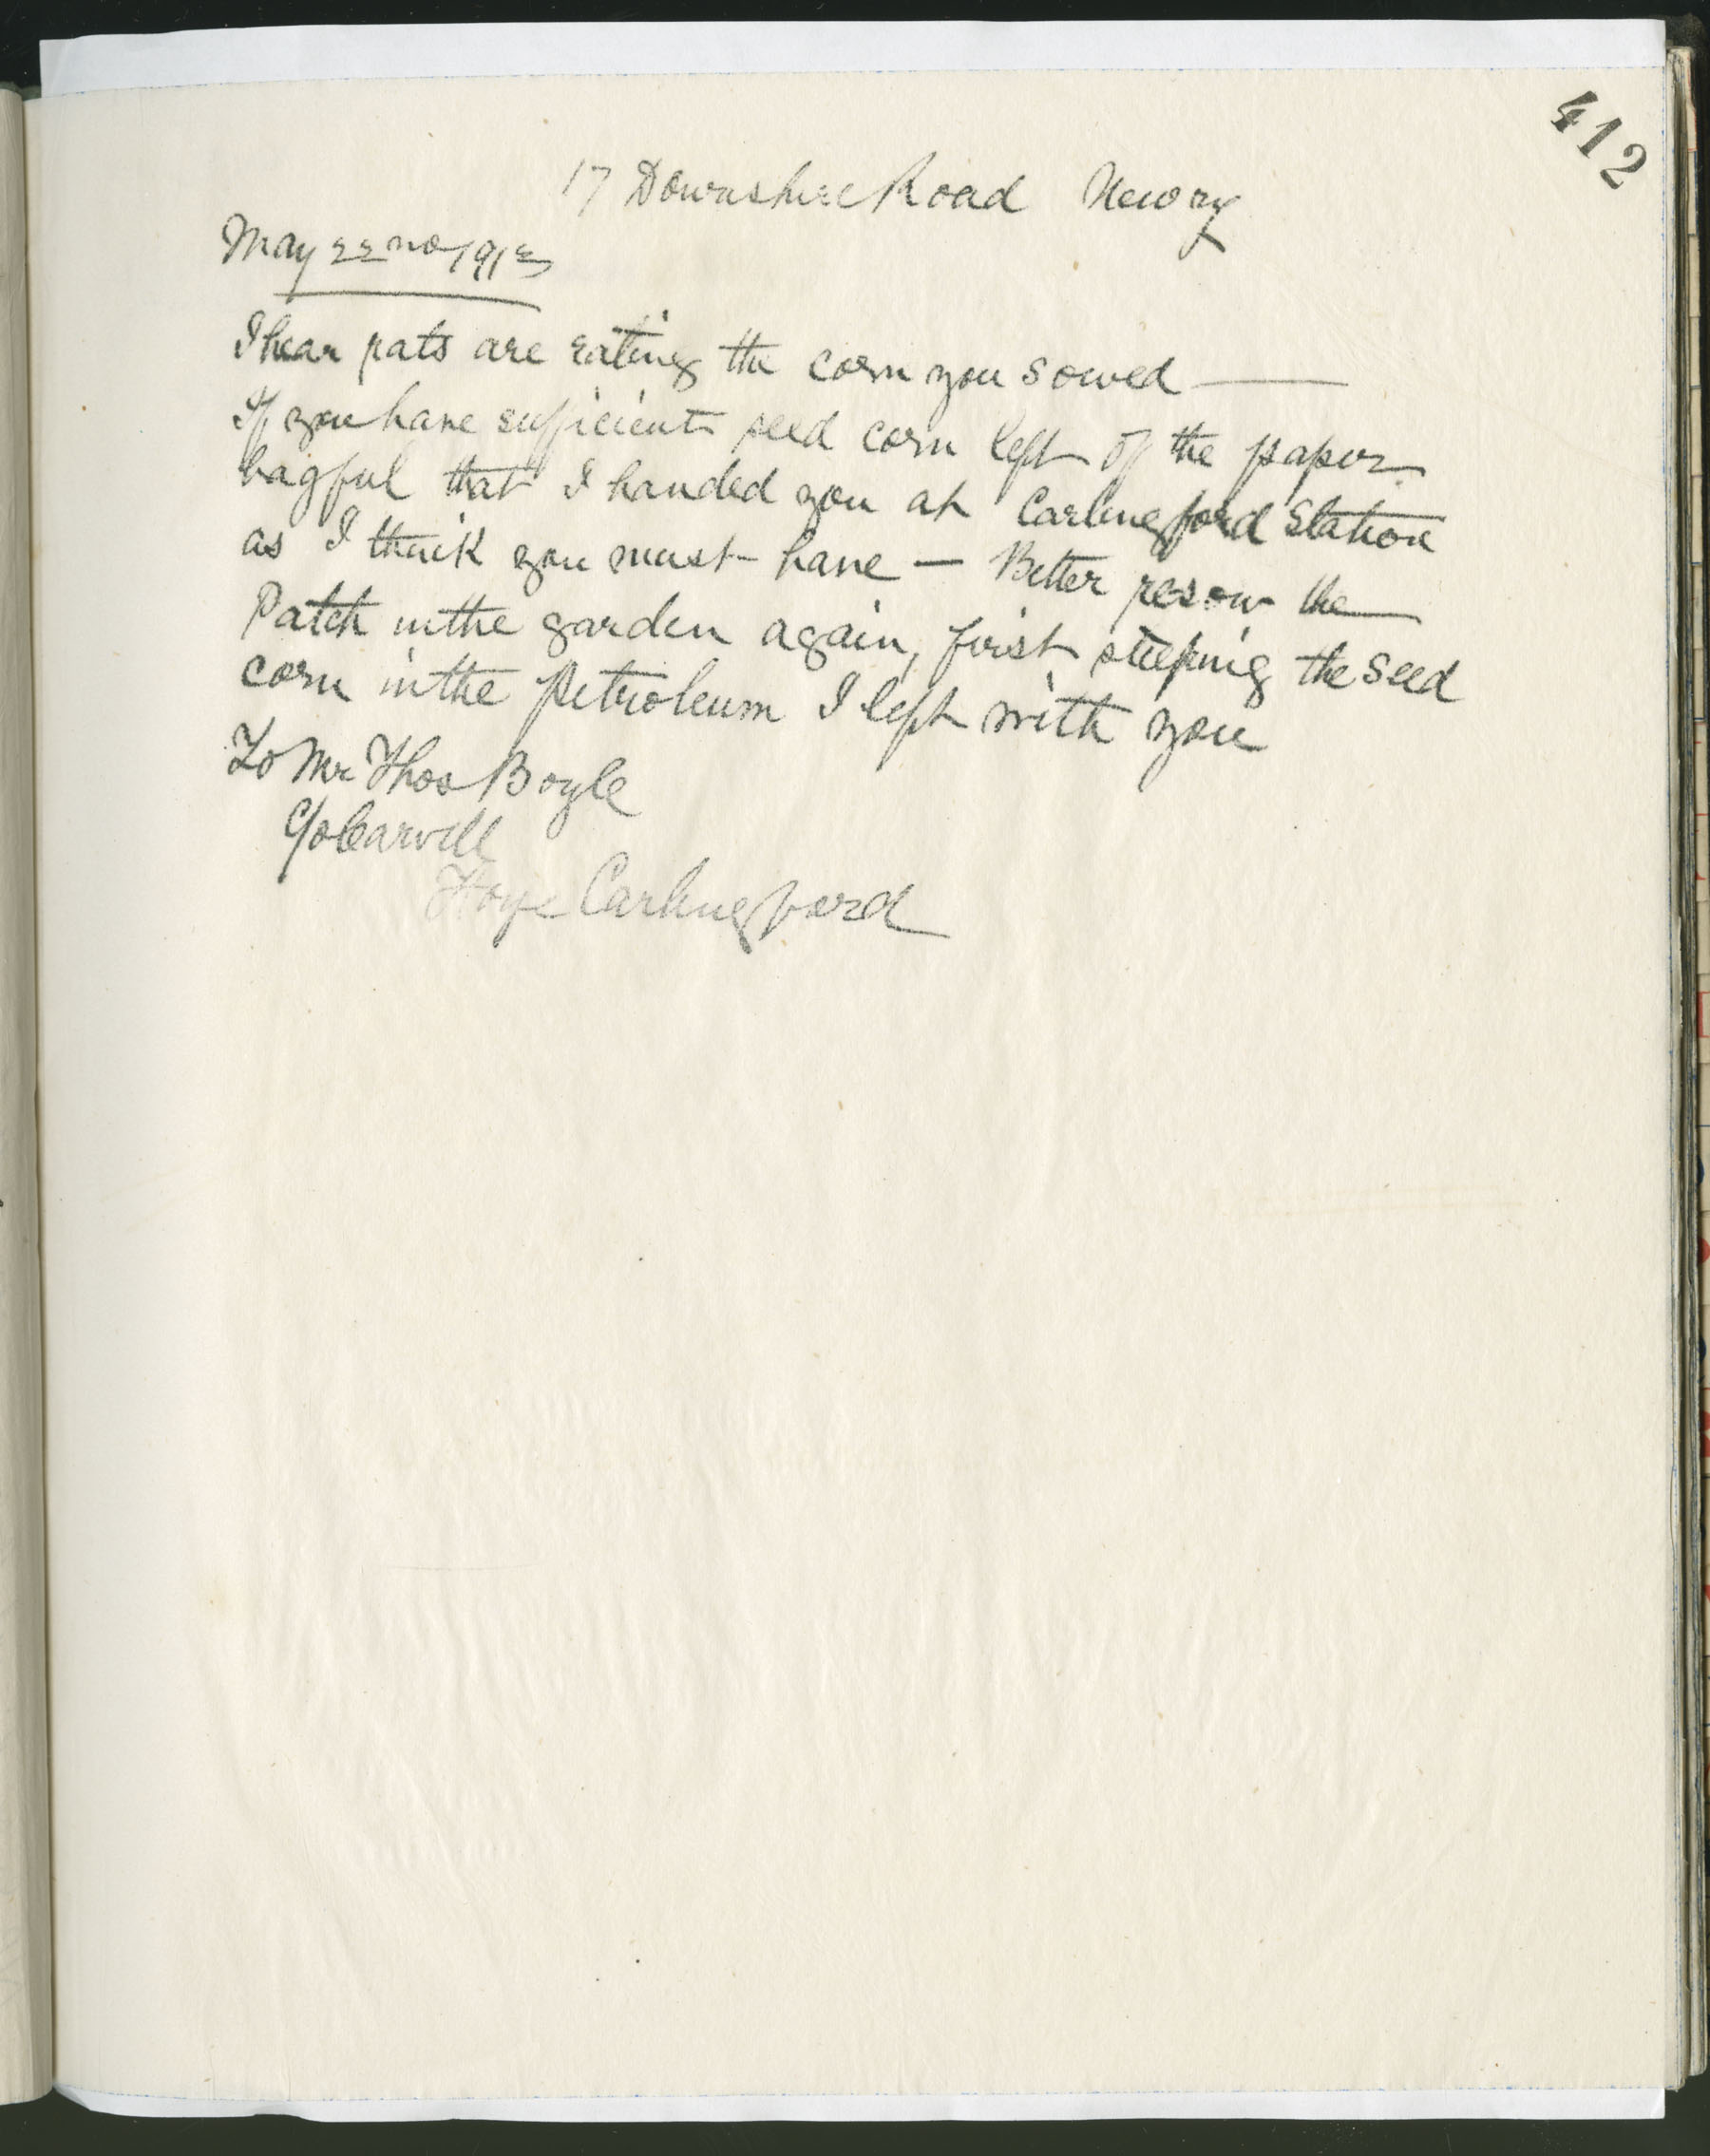 412
17 Downshire Road Newry
May 22nd 1913
I hear rats are eating the corn you sowed —
If you have sufficient seed corn left of the paper
bagful that I handed you at Carlingford Station
as I think you must have — Better resow the
Patch in the garden again, first steeping the seed
corn in the Petroleum I left with you
To Mr Thos Boyle
C/o Carvill
Carlingford